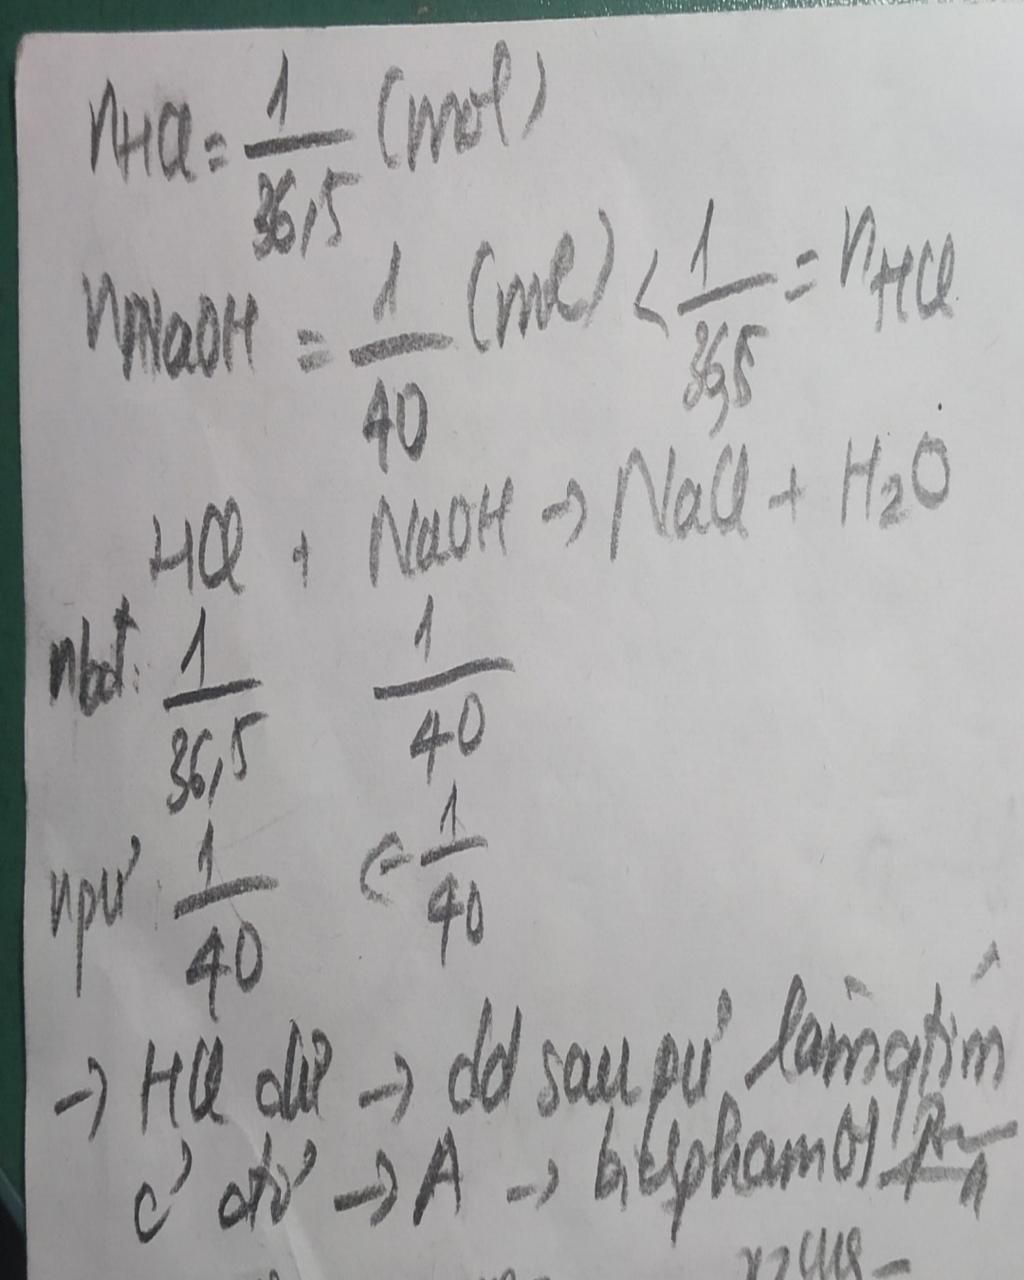 nHCl = 1/36,5 (mol)
nNaOH = 1/40 (mol) < 1/36,5 = nHCl
HCl + NaOH → NaCl + H2O
nbđ: 1/36,5 1/40
npư: 1/40 ← 1/40
→ HCl dư → dd sau pư làm quỳ tím
→ A →